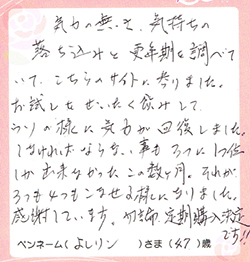 気力の無いさ、気持ちの
落ち込みと更年期を調べて
いて、こちらのサイトに参りました。
お試しをぜいたく飲みして
ウソの様に気力が回復しました。
しなければならない事も3つに1つ位
しか出来なかったこの数ヶ月。それが
3つも4つもこなせる様になりました。
感謝しています。勿論、定期購入決定
です!!
ペンネーム(よしリン)さま(47)歳